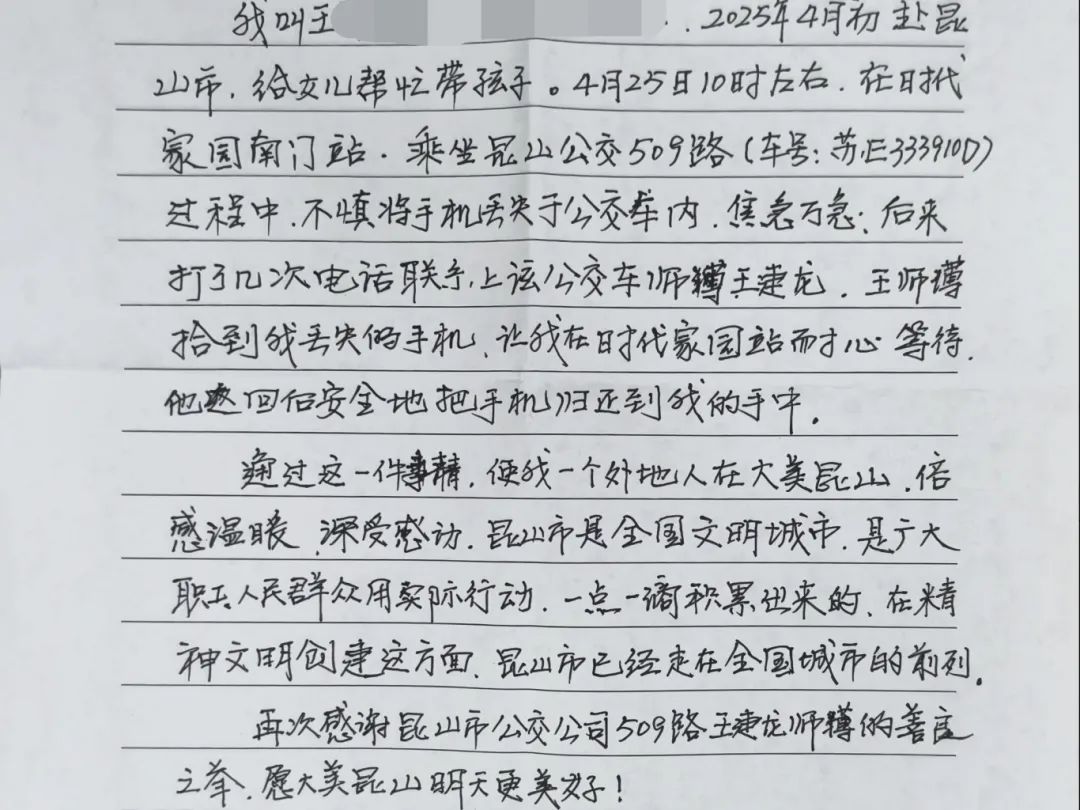 我叫王 . 2025年4月初赴昆
山市，给女儿帮忙带孩子。4月25日10时左右，在时代
家园南门站，乘坐昆山公交509路(车号：苏E33391D)
过程中，不慎将手机丢失于公交车内，焦急万急；后来
打了几次电话联系上该公交车师傅王建龙，王师傅
拾到我丢失的手机，让我在时代家园站耐心等待，
他返回后安全地把手机归还到我的手中。
通过这一件事情，使我一个外地人在大美昆山，倍
感温暖，深受感动，昆山市是全国文明城市，是广大
职工人民群众用实际行动，一点一滴积累出来的，在精
神文明创建这方面，昆山市已经走在全国城市的前列。
再次感谢昆山市公交公司509路王建龙师傅的善良
之举，愿大美昆山明天更美好！